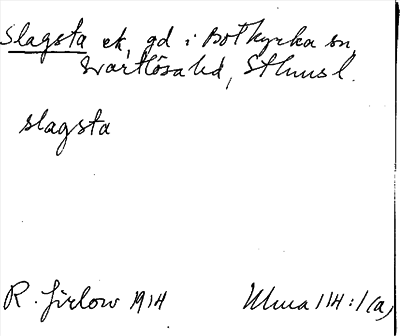 Slagsta ek, gd i Botkyrka sn,
Svartlösa hd, Sthms l.
slagsta
R. Jirlow 1914 Ulma 114:1(a)